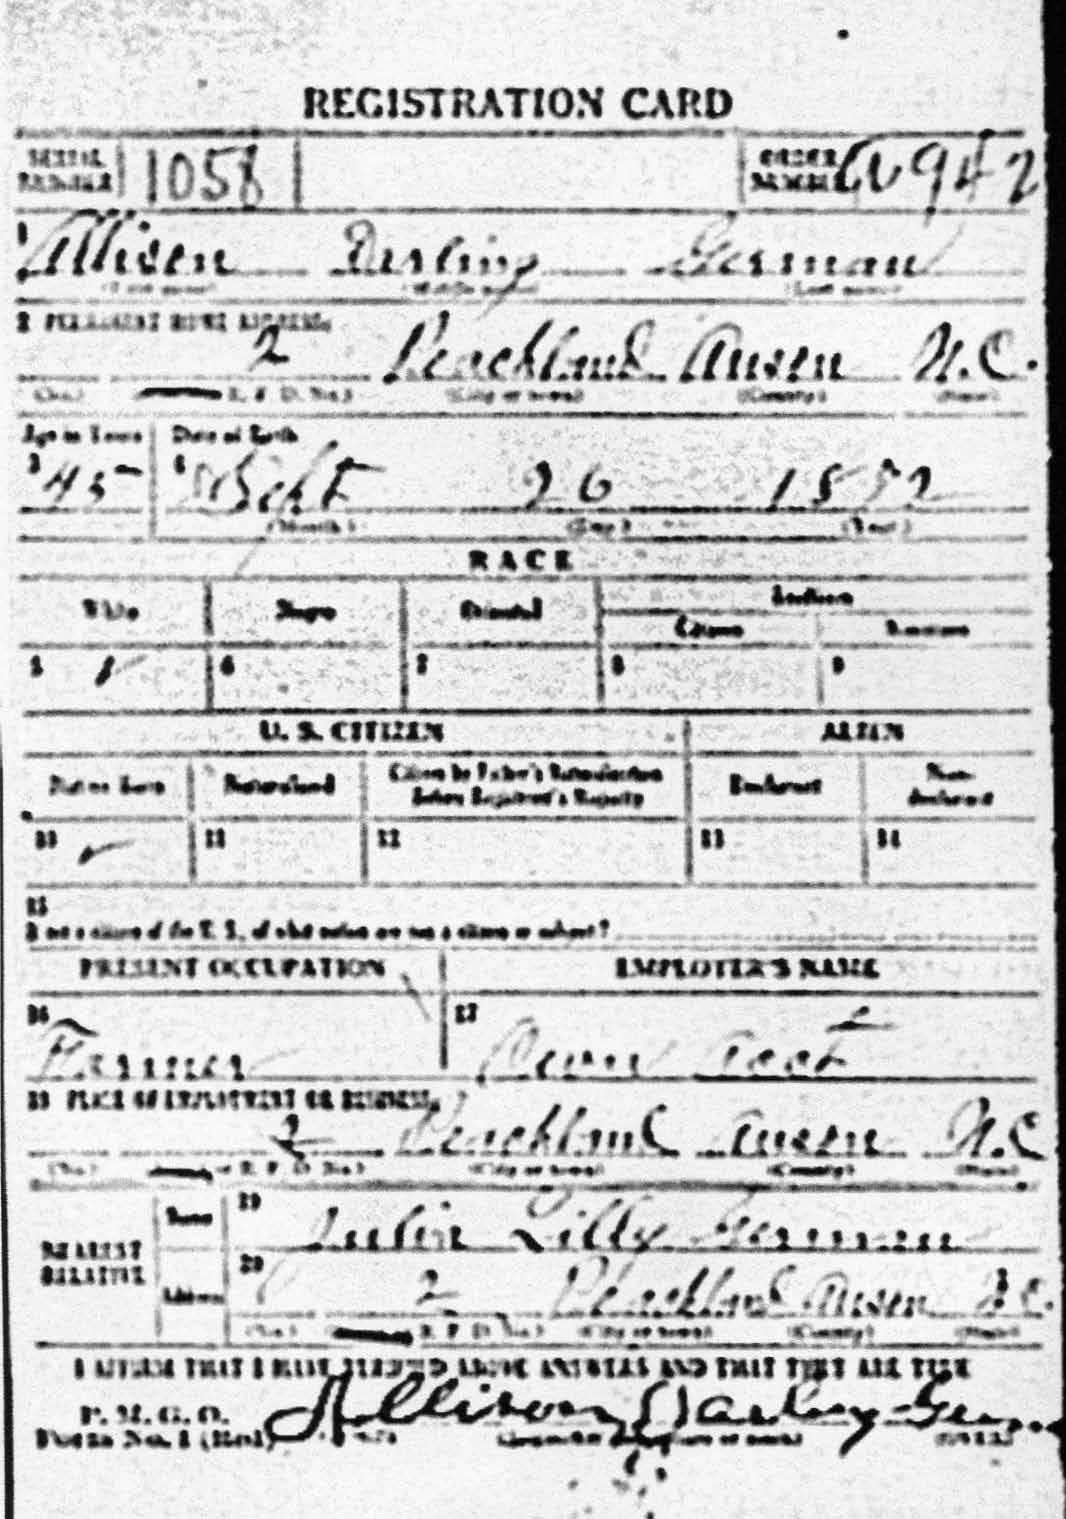 REGISTRATION CARD
SERIAL NUMBER 1058 ORDER NUMBER 942
1 Allison Darling German
(First name) (Middle name) (Last name)
2 PERMANENT HOME ADDRESS:
2 Peachland Anson N.C.
(No.) R. F. D. No.) (City or town) (County) (State)
Age in Years Date of Birth
3 45 4 Sept 26
(Month) (Day) (Year)
RACE
White Negro Oriental Indian
Citizen
5 ✓ 6 7 8 9
U. S. CITIZEN ALIEN
Native Born Naturalized Citizen by Father's Naturalization Before Registrant's Majority Declarant Non-declarant
10 ✓ 11 12 13 14
15
If not a citizen of the U. S., of what nation are you a citizen or subject?
PRESENT OCCUPATION EMPLOYER'S NAME
16 Farmer 17 Own
18 PLACE OF EMPLOYMENT OR BUSINESS:
2 Peachland Anson N.C
(No.) or R. F. D. No.) (City or town) (County) (State)
NEAREST RELATIVE
Name 19 Julia Lilly German
Address 20 2 Peachland Anson N.C.
(No.) R. F. D. No.) (City or town) (County) (State)
I AFFIRM THAT I HAVE VERIFIED ABOVE ANSWERS AND THAT THEY ARE TRUE
P. M. G. O.
Form No. 1 (Red) Allison Darling